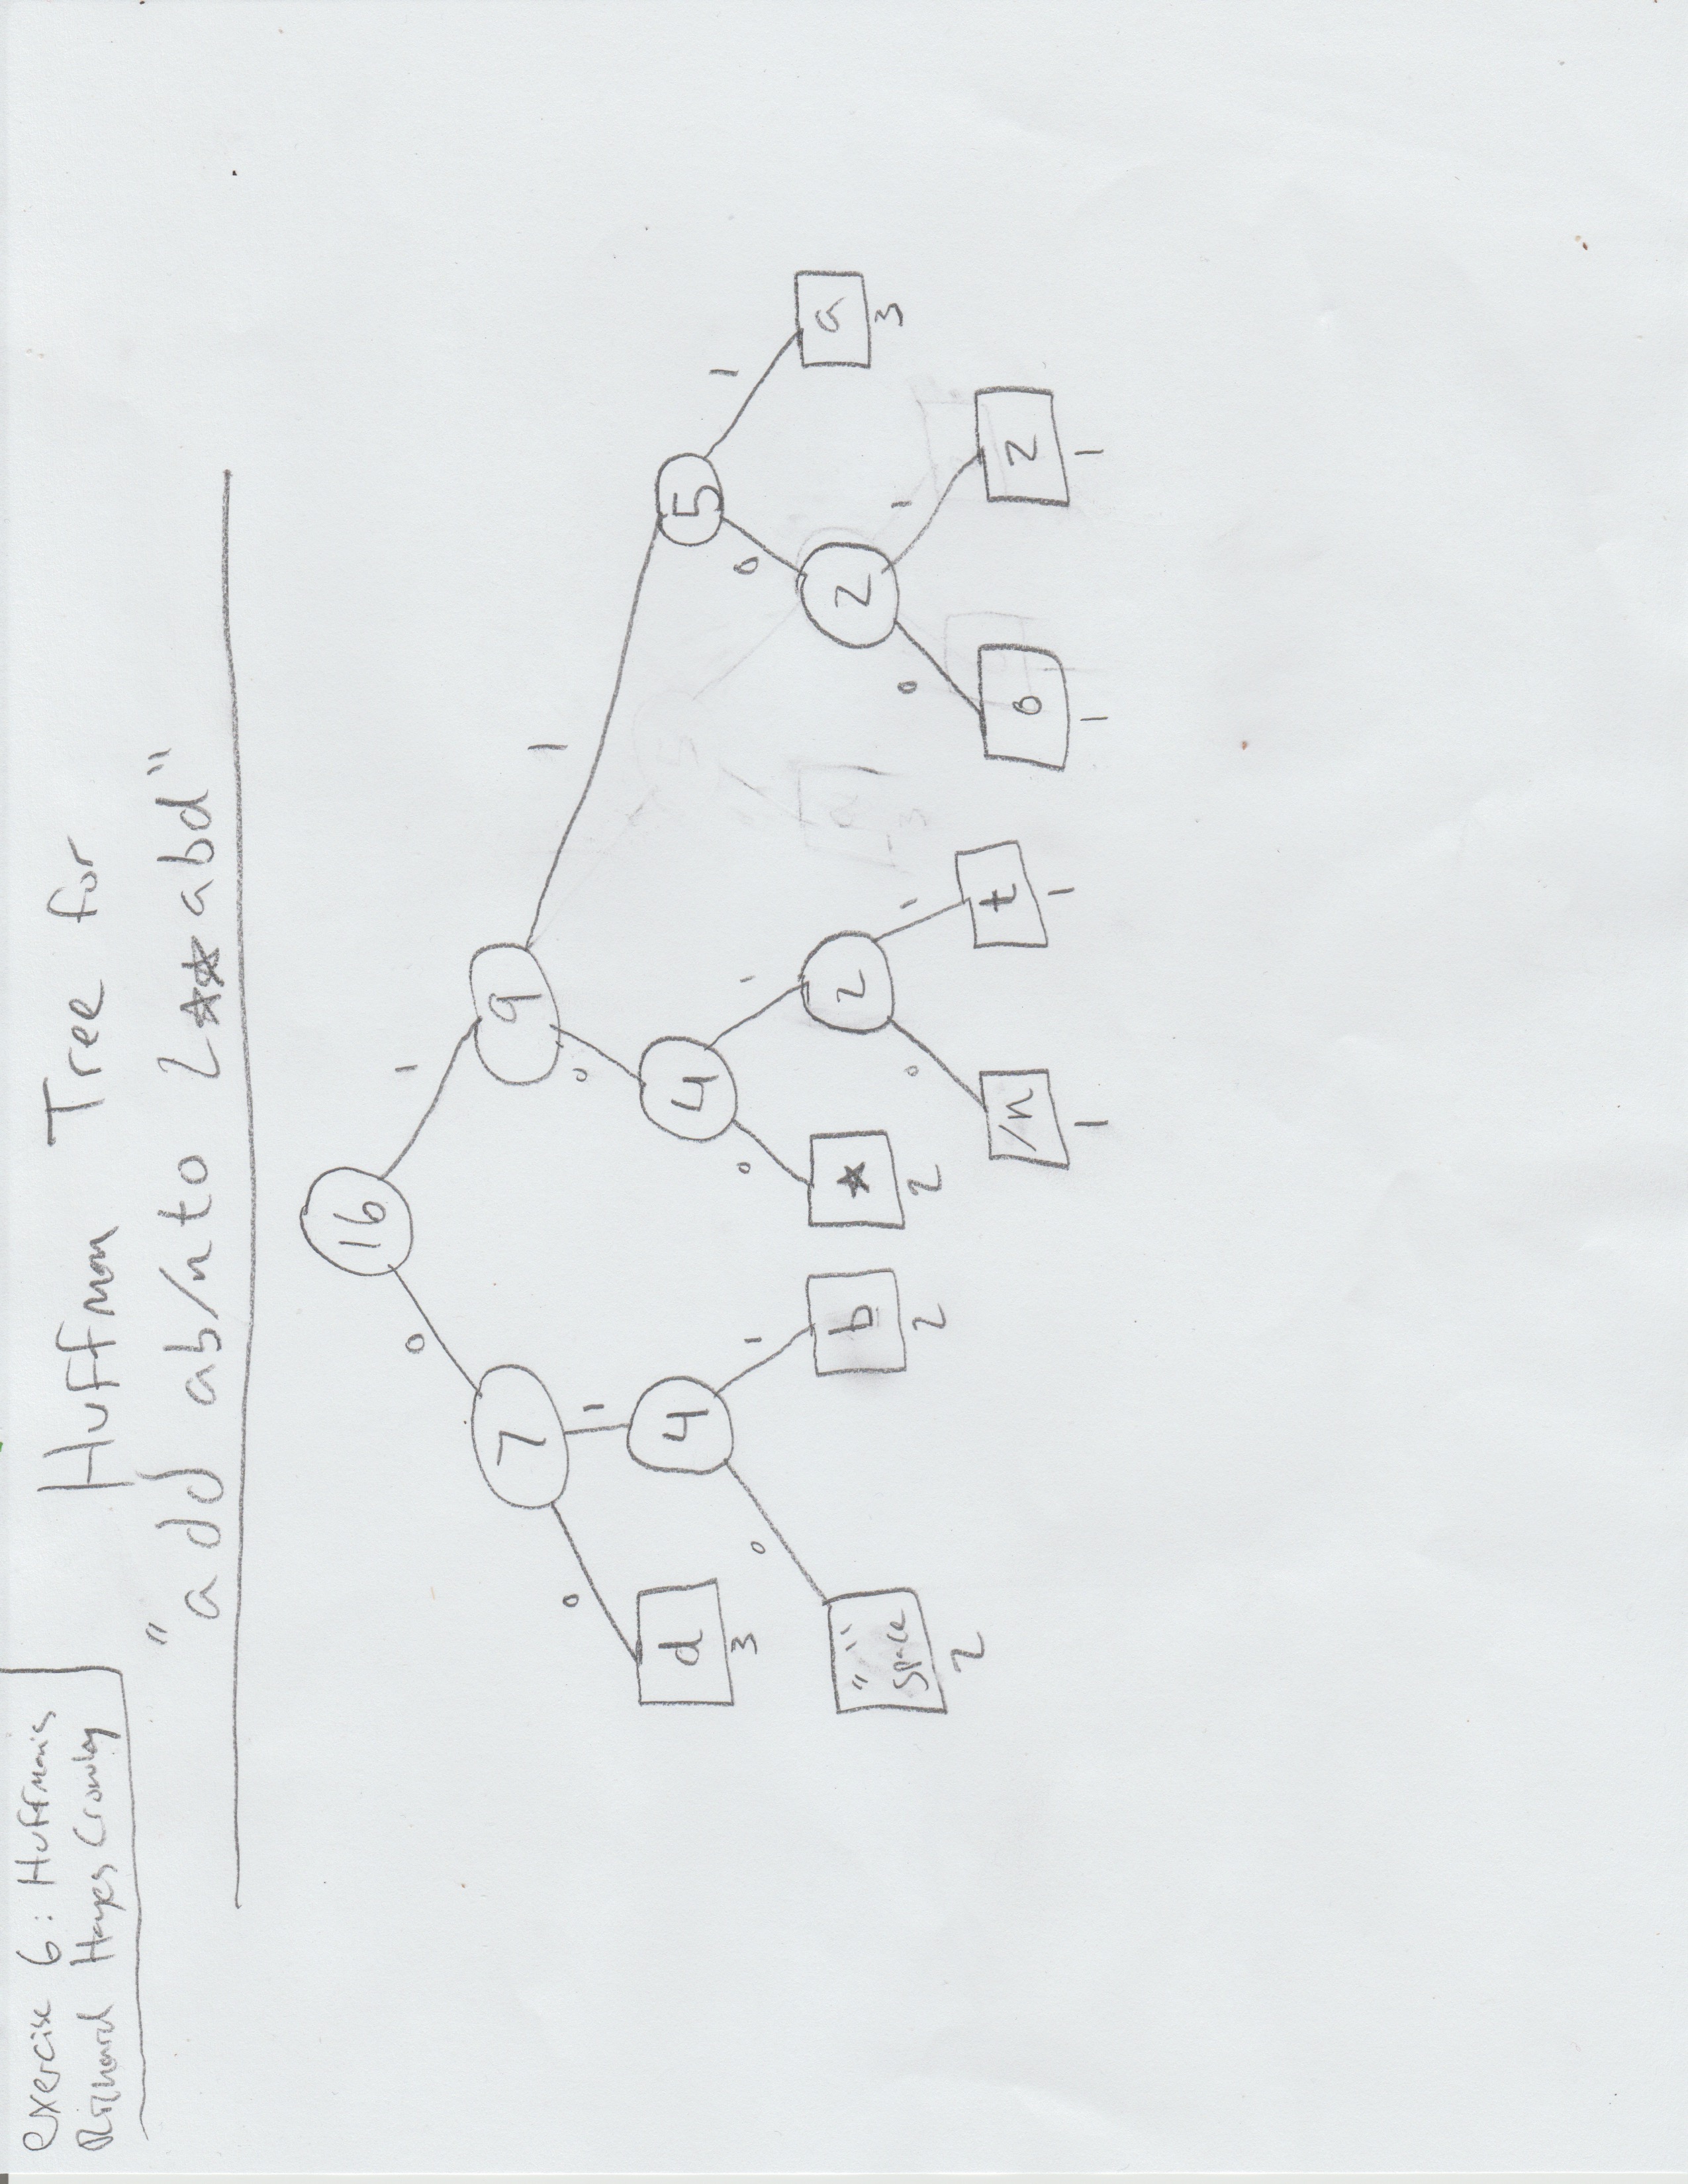 exercise 6: Huffman's
Richard Hayes Crowley
Huffman Tree for
"add ab/nto 2☆☆abd"
16
0
1
7
9
0
1
0
1
d
3
4
4
5
0
1
0
1
0
1
" "
space
2
b
2
☆
2
2
2
a
3
0
1
0
1
/n
1
t
1
o
1
2
1